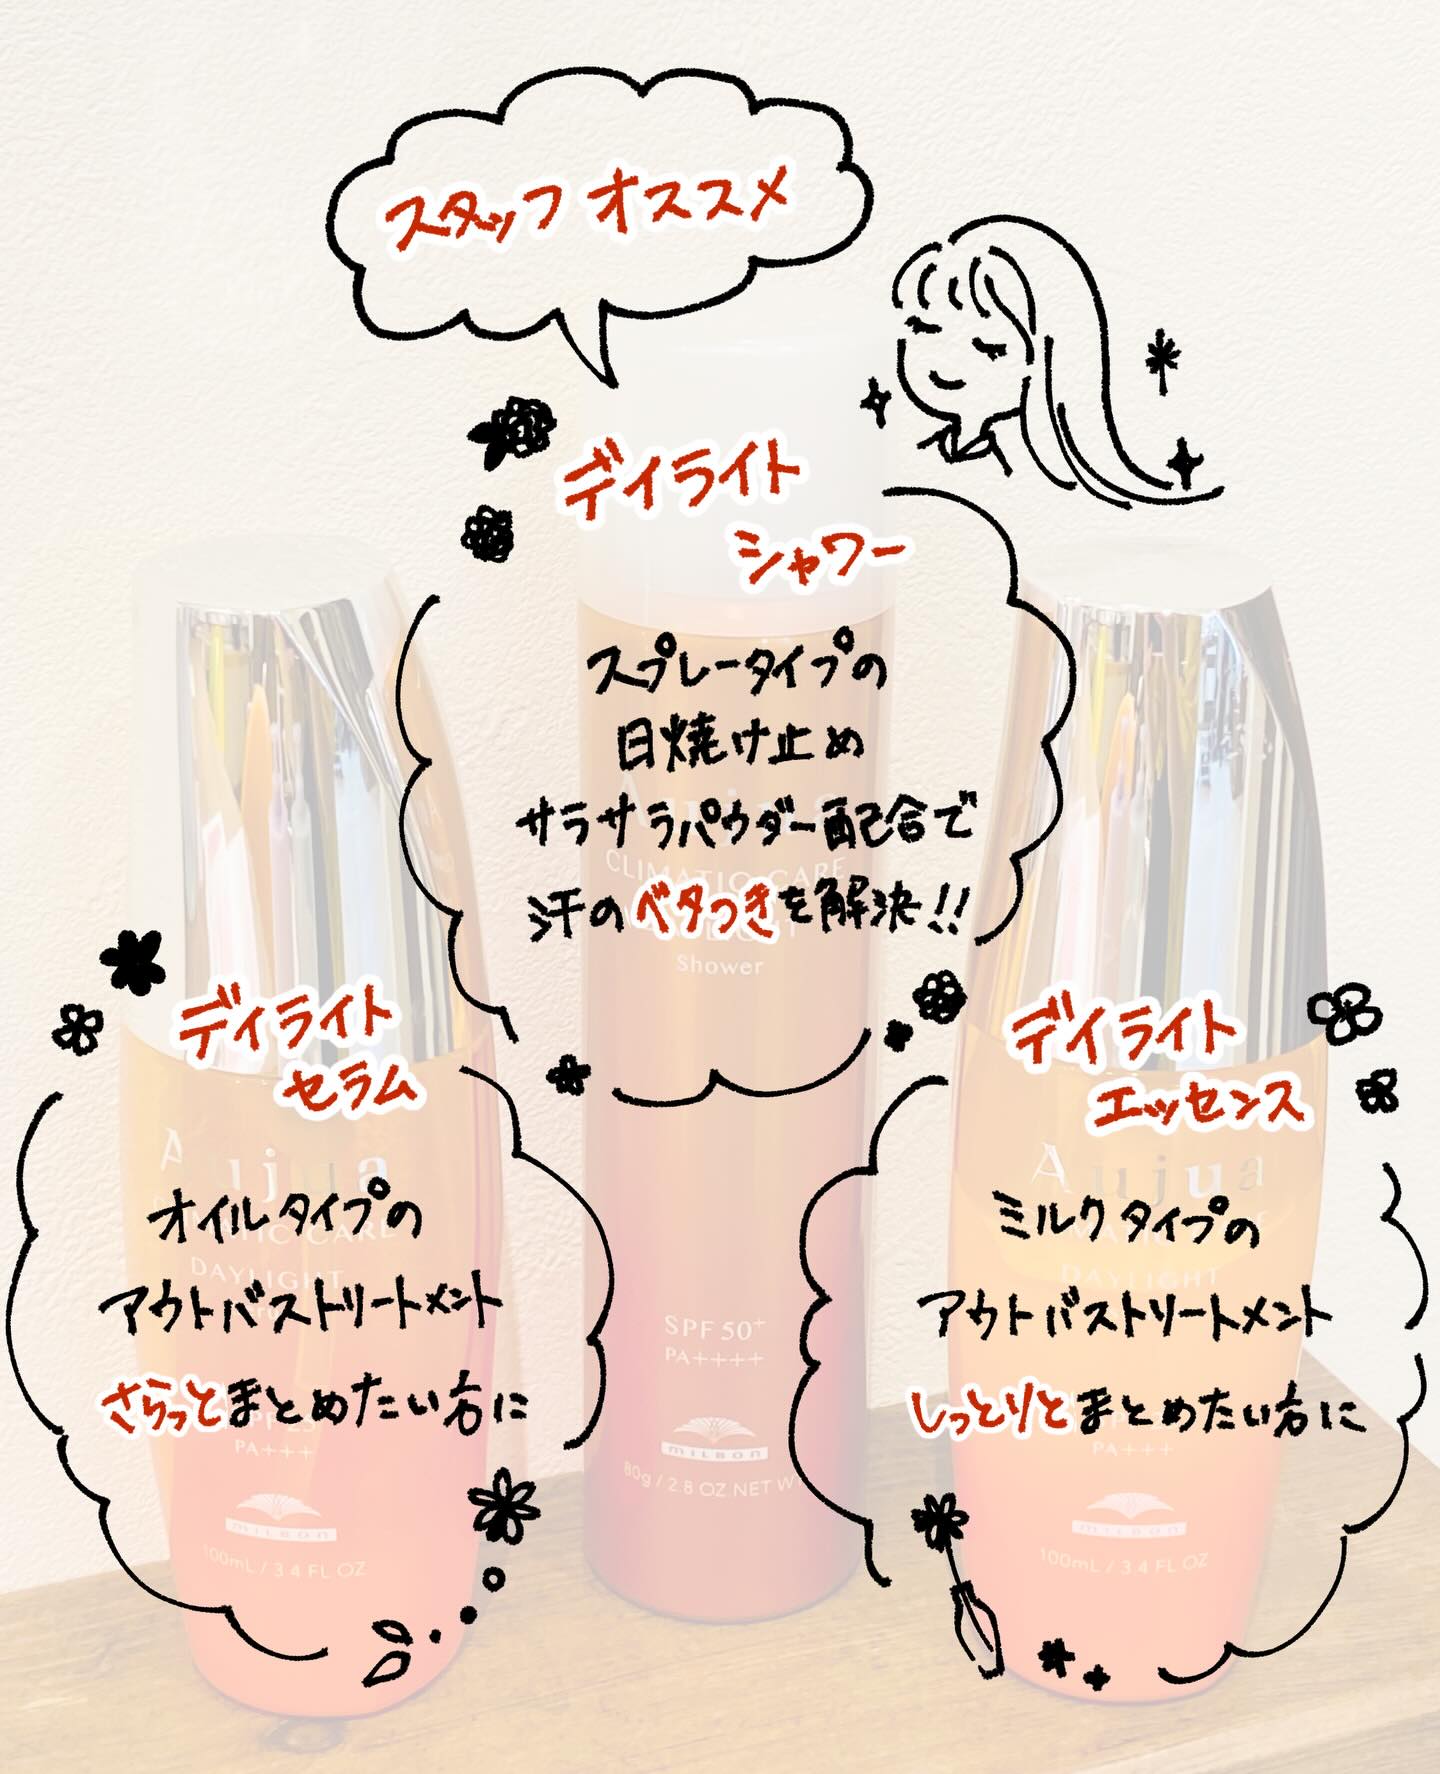 スタッフ オススメ
デイライト
シャワー
スプレータイプの
日焼け止め
サラサラパウダー配合で
汗のベタつきを解決!!
CLIMATIC CARE
Shower
SPF 50+
PA++++
milbon
80g / 2.8 OZ NET W
デイライト
セラム
Aujua
オイルタイプの
DAYLIGHT
アウトバストリートメント
さらっとまとめたい方に
PA+++
milbon
100mL / 3.4 FL OZ
デイライト
エッセンス
Aujua
ミルクタイプの
DAYLIGHT
アウトバストリートメント
しっとりとまとめたい方に
PA+++
milbon
100mL / 3.4 FL OZ